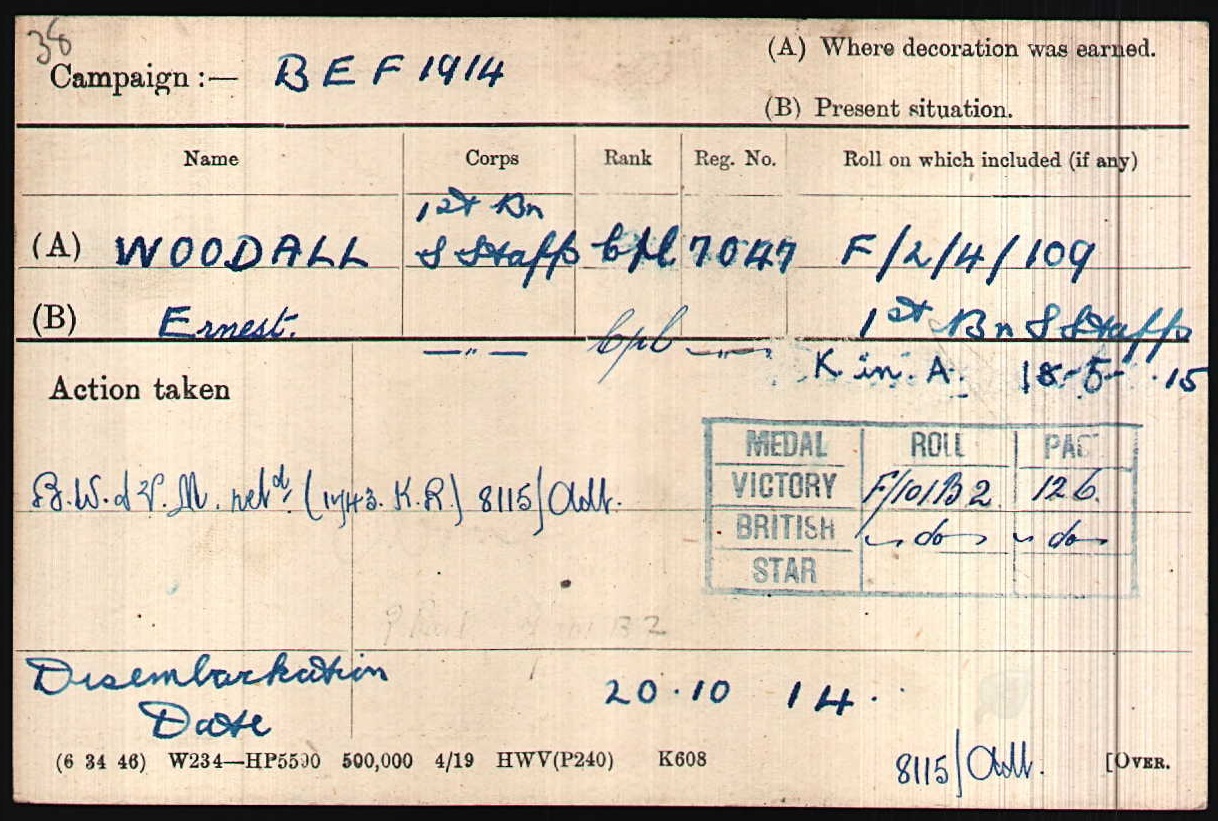 38
Campaign :— B E F 1914
(A) Where decoration was earned.
(B) Present situation.
Name Corps Rank Reg. No. Roll on which included (if any)
1st Bn
(A) WOODALL S Staffs Cpl 7047 F/2/4/109
(B) Ernest. 1st Bn S Staffs
—"— Cpl —"—
K in A. 18-5-15
Action taken
MEDAL ROLL PAGE
VICTORY F/101B2 126.
B.W. & V.M. retd, (1743. K.R.) 8115/Adt.
BRITISH " do " do
STAR
B2
Disembarkation
Date
20.10 14.
(6 34 46) W234—HP5590 500,000 4/19 HWV(P240) K608
8115/Adt. [OVER.